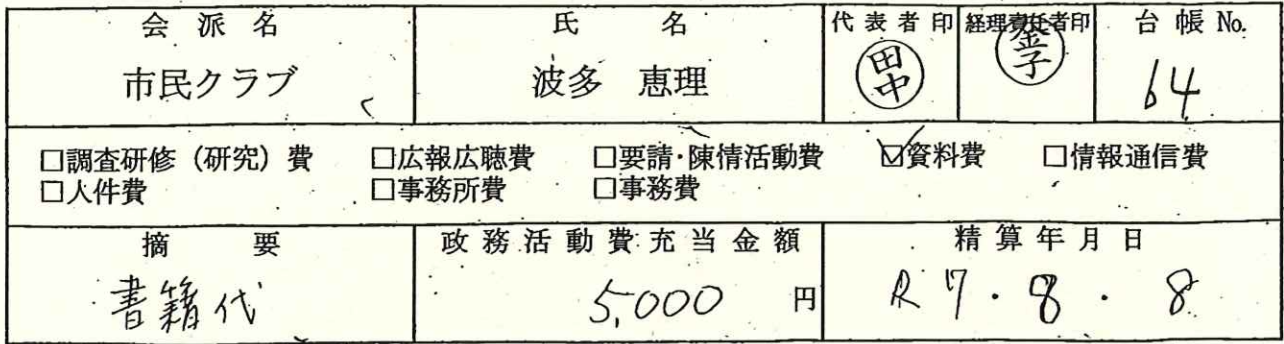 会派名 氏名 代表者印 経理責任者印 台帳No.
市民クラブ 波多 恵理 田中 金子 64
□調査研修（研究）費 □広報広聴費 □要請・陳情活動費 ☑資料費 □情報通信費
□人件費 □事務所費 □事務費
摘要 政務活動費充当金額 精算年月日
書籍代 5,000 円 R7.8.8